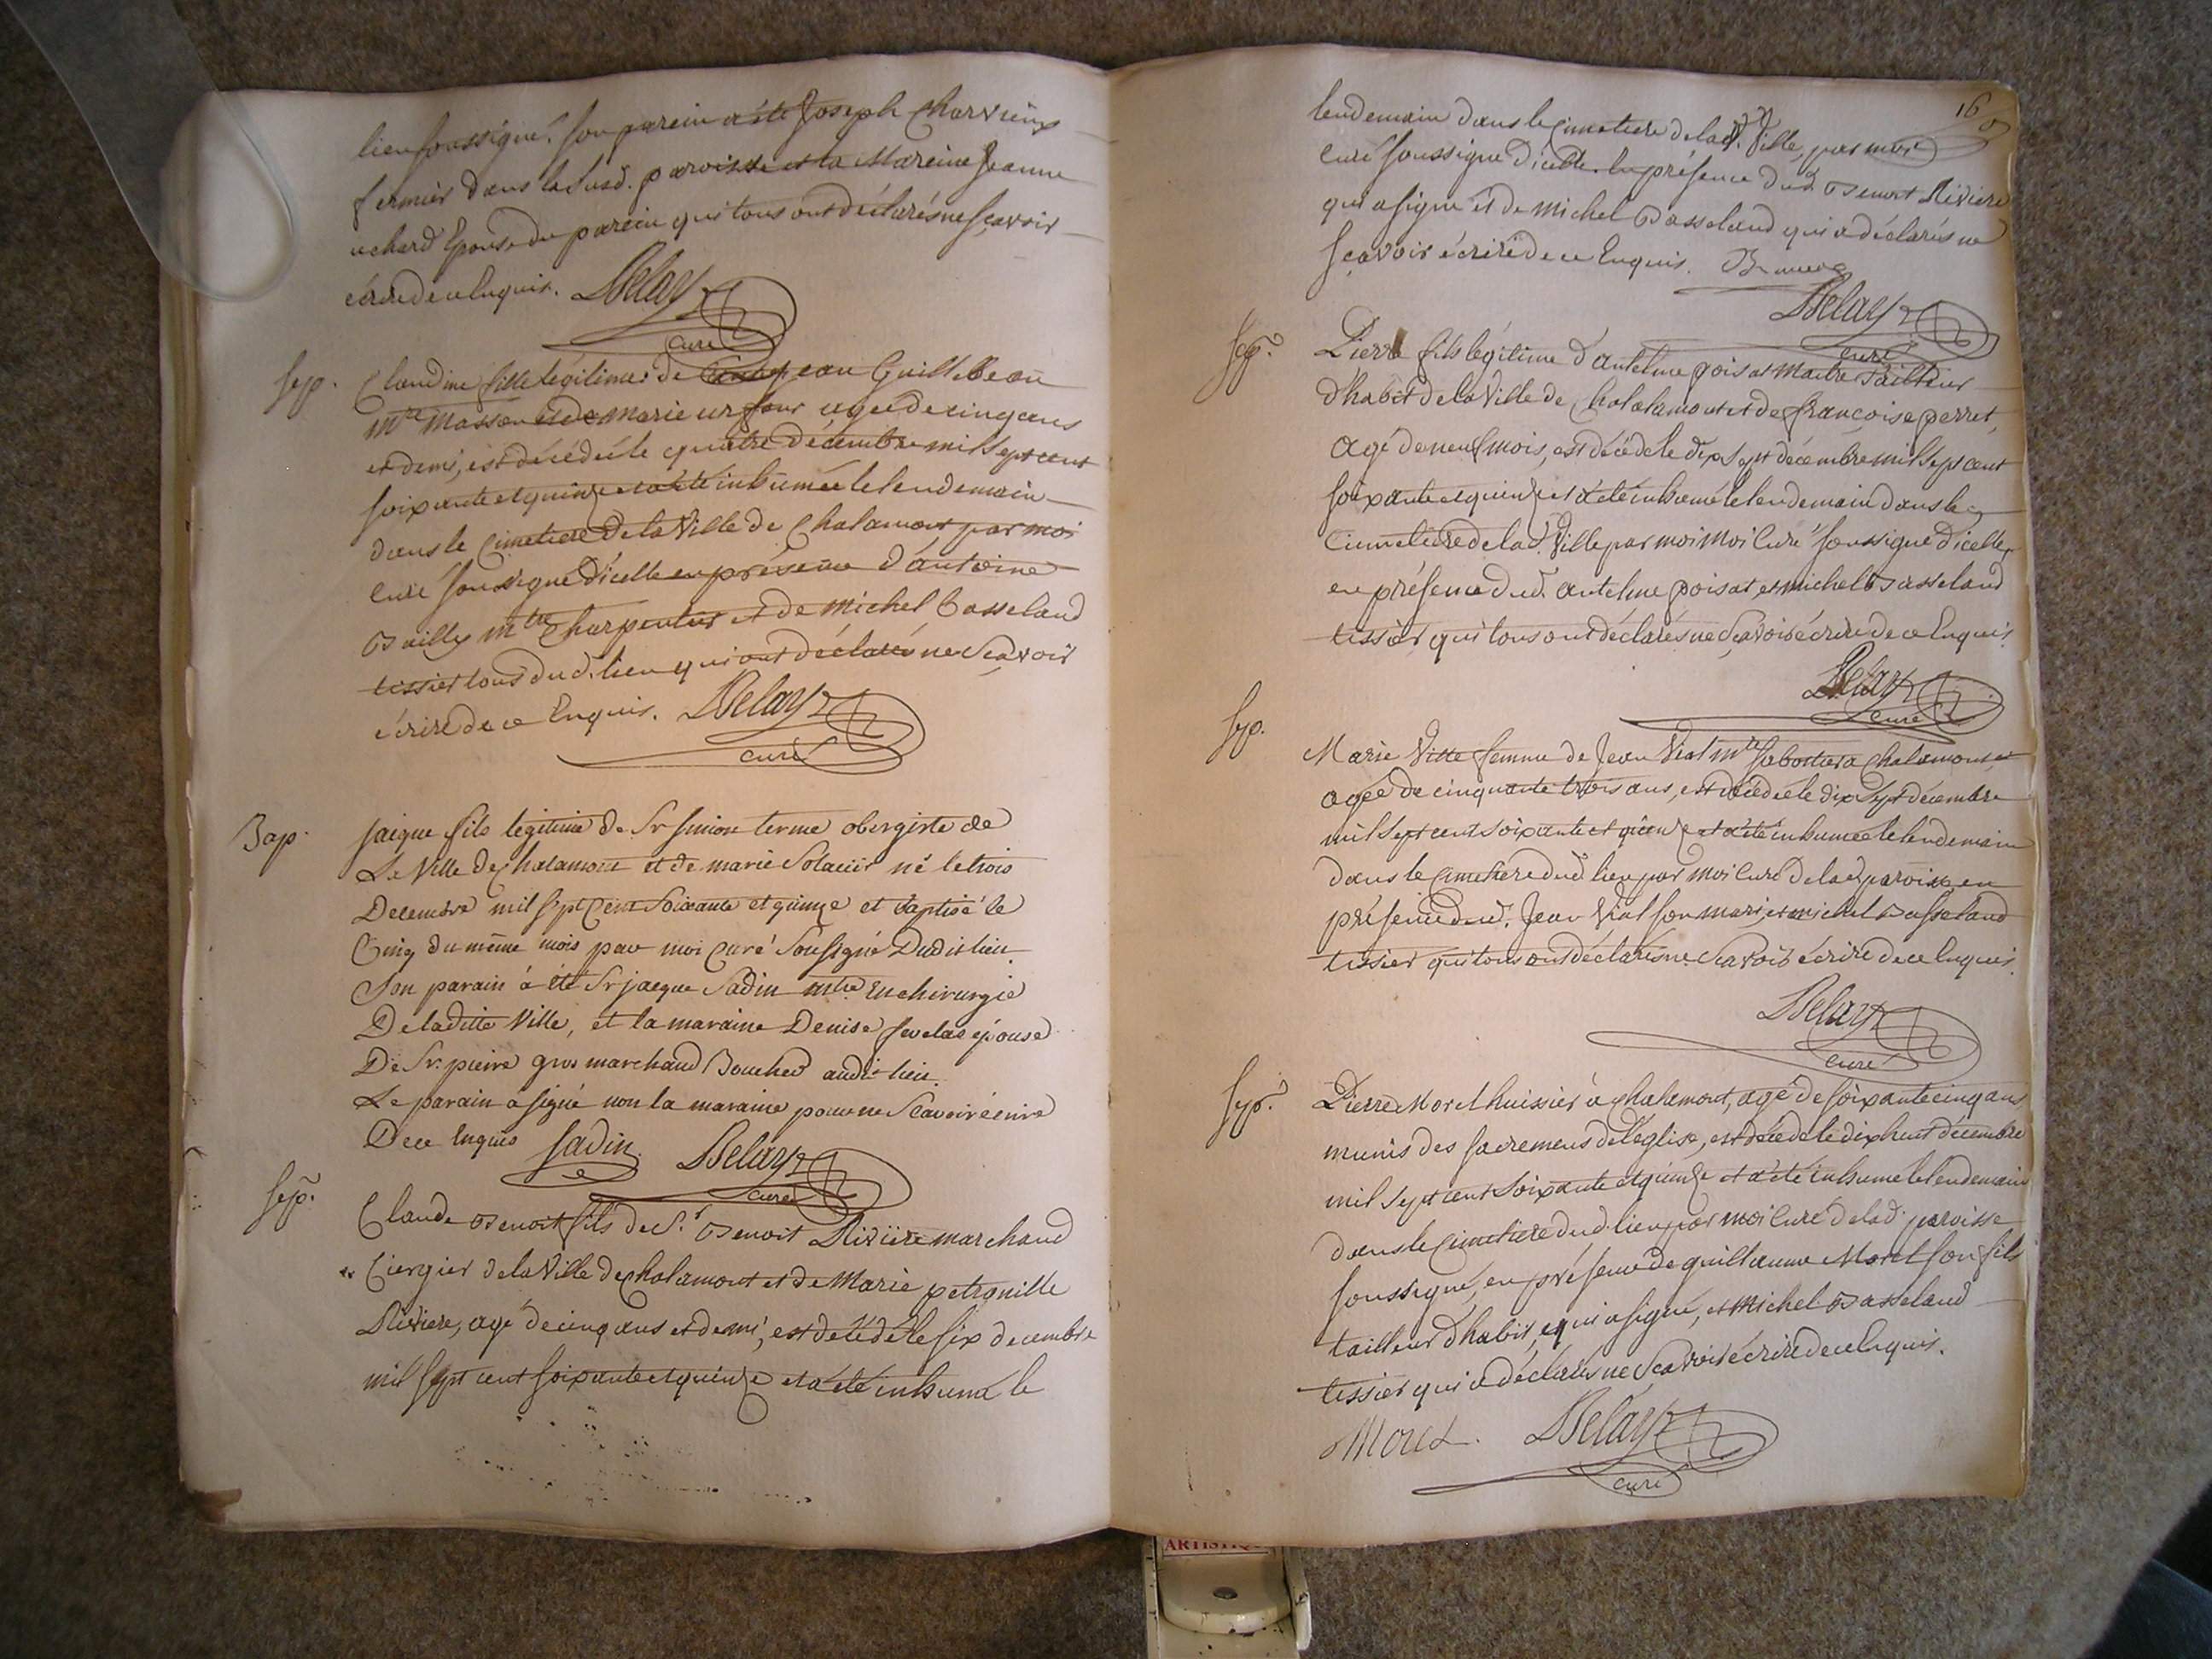 lieu soussigné. son parein a été Joseph Charvieux
fermier dans la susd. paroisse et la Mareine Jeanne
uchard Epouse du parein qui tous ont déclarés ne sçavoir
écrire de ce Enquis. Delay
curé
sep. Claudine fille légitime de Jean Guillebeau
mtre masson et de marie agée de cinq ans
et demi, est décédée le quatre décembre mil sept cent
soixante et quinze et a été inhumée le lendemain
dans le Cimetiere de la Ville de Chalamont par moi
Curé soussigné d'icelle en présence d'antoine
Bailly mtre Charpentier et de michel Basseland
tissier tous du d. lieu qui ont déclarés ne Sçavoir
écrire de ce Enquis. Delay
curé
Bap. jaique fils legitime de Sr simon terme obergiste de
La Ville de Chalamont et de marie né le trois
Decembre mil sept Cent Soixante et quinze et Baptisé le
Cinq du même mois par moi Curé Sousigné Dudit lieu
Son parain á été Sr jacque Sadin mtre En chirurgie
De laditte Ville, et la maraine Denise épouse
De Sr. pierre gros marchand Boucher audit lieu.
Le parain a signé non la maraine pour ne Scavoir écrire
De ce Enquis Sadin Delay
curé
sep. Claude Benoit fils de S.r Benoit Riviere marchand
Ciergier de la Ville de Chalamont et de Marie petronille
Riviere, agé de cinq ans et demi, est décédé le six decembre
mil sept cent soixante et quinze et a été inhumé le
16
lendemain dans le Cimetiere de la d. Ville, par moi
curé soussigné d'icelle. En présence dud. Benoit Riviere
qui a signé et de michel Basseland qui a déclarés ne
sçavoir écrire de ce Enquis.
Delay
curé
sep. Pierre fils légitime d'antelme poisat Maitre Tailleur
d'habit de la Ville de Chalalamont et de françoise perret,
agé de neuf mois, est décédé le dix Sept décembre mil sept cent
soixante et quinze et a été inhumé le lendemain dans le
Cimetiere de la d. Ville par moi Moi Curé soussigné d'icelle,
en présence dud. antelme poisat, et michel Basseland
tissier qui tous ont déclarés ne Sçavoir écrire de ce Enquis.
Delay
curé
sep. Marie Vitte femme de Jean Vial mtre Sabottier a Chalamont
agée de cinquante trois ans, est décédée le dix Sept décembre
mil sept cent soixante et quinze et a été inhumée le lendemain
dans le Cimetiere dud. lieu par moi Curé de la d. paroisse en
présence dud. Jean Vial son mari, et michel Basseland
tissier qui tous ont déclarés ne Scavoir écrire de ce Enquis.
Delay
curé
sep. Pierre Morel huissier à Chalamont, agé de soixante cinq ans
munis des sacremens de l'église, est décédé le dix huit décembre
mil sept cent soixante et quinze et a été inhumé le lendemain
dans le Cimetiere dud. lieu par moi Curé de la d. paroisse
soussigné, en présence de guillaume Morel son fils
tailleur d'habit, qui a signé, et michel Basseland
tissier qui a déclarés ne Scavoir écrire de ce Enquis.
Morel. Delay
curé